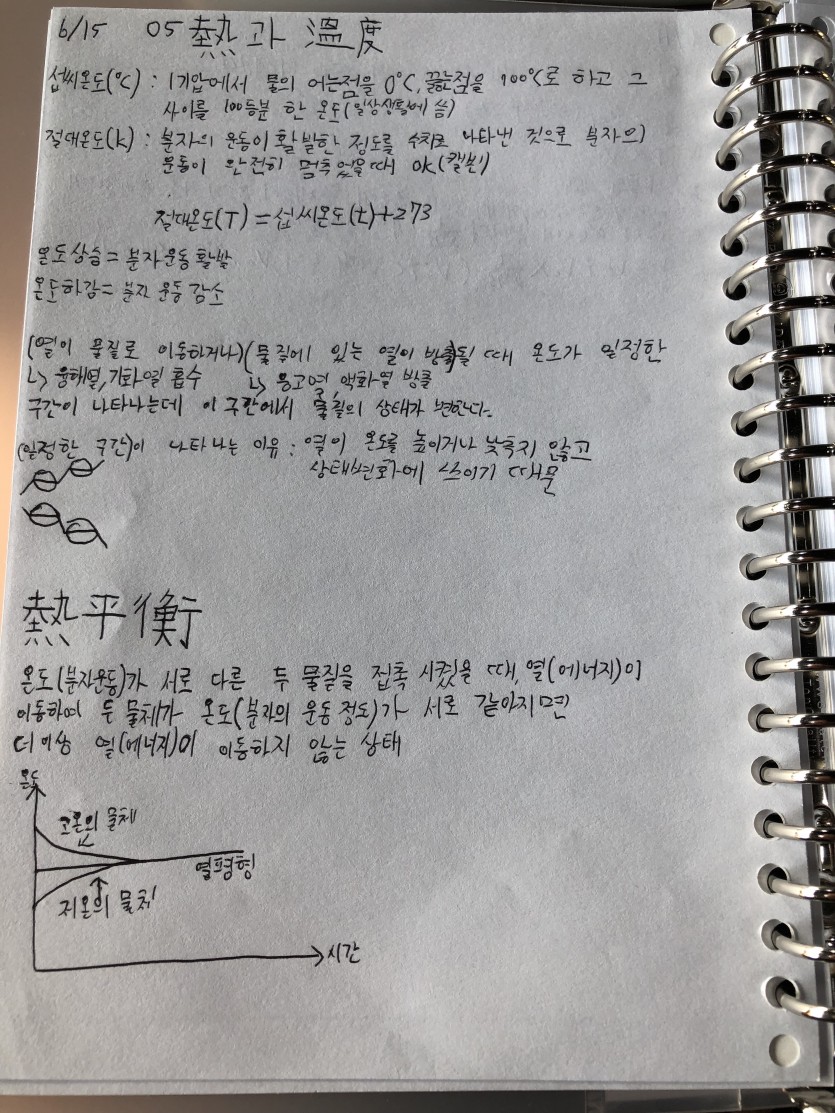 6/15 05 熱과 溫度
섭씨온도(℃) : 1기압에서 물의 어는점을 0℃, 끓는점을 100℃로 하고 그
사이를 100등분 한 온도(일상생활에 씀)
절대온도(k) : 분자의 운동이 활발한 정도를 수치로 나타낸 것으로 분자의
운동이 완전히 멈추었을 때 0k(캘빈)
절대온도(T) = 섭씨온도(t)+273
온도상승 = 분자운동 활발
온도하강 = 분자 운동 감소
(열이 물질로 이동하거나)(물질에 있는 열이 방출)될 때 온도가 일정한
↳ 융해열, 기화열 흡수 ↳ 응고열 액화열 방출
구간이 나타나는데 이 구간에서 물질의 상태가 변한다.
(일정한 구간)이 나타나는 이유 : 열이 온도를 높이거나 낮추지 않고
상태변화에 쓰이기 때문
熱平衡
온도(분자운동)가 서로 다른 두 물질을 접촉 시켰을 때, 열(에너지)이
이동하여 두 물체가 온도(분자의 운동 정도)가 서로 같아지면
더 이상 열(에너지)이 이동하지 않는 상태
온도
고온의 물체
열평형
저온의 물체
시간